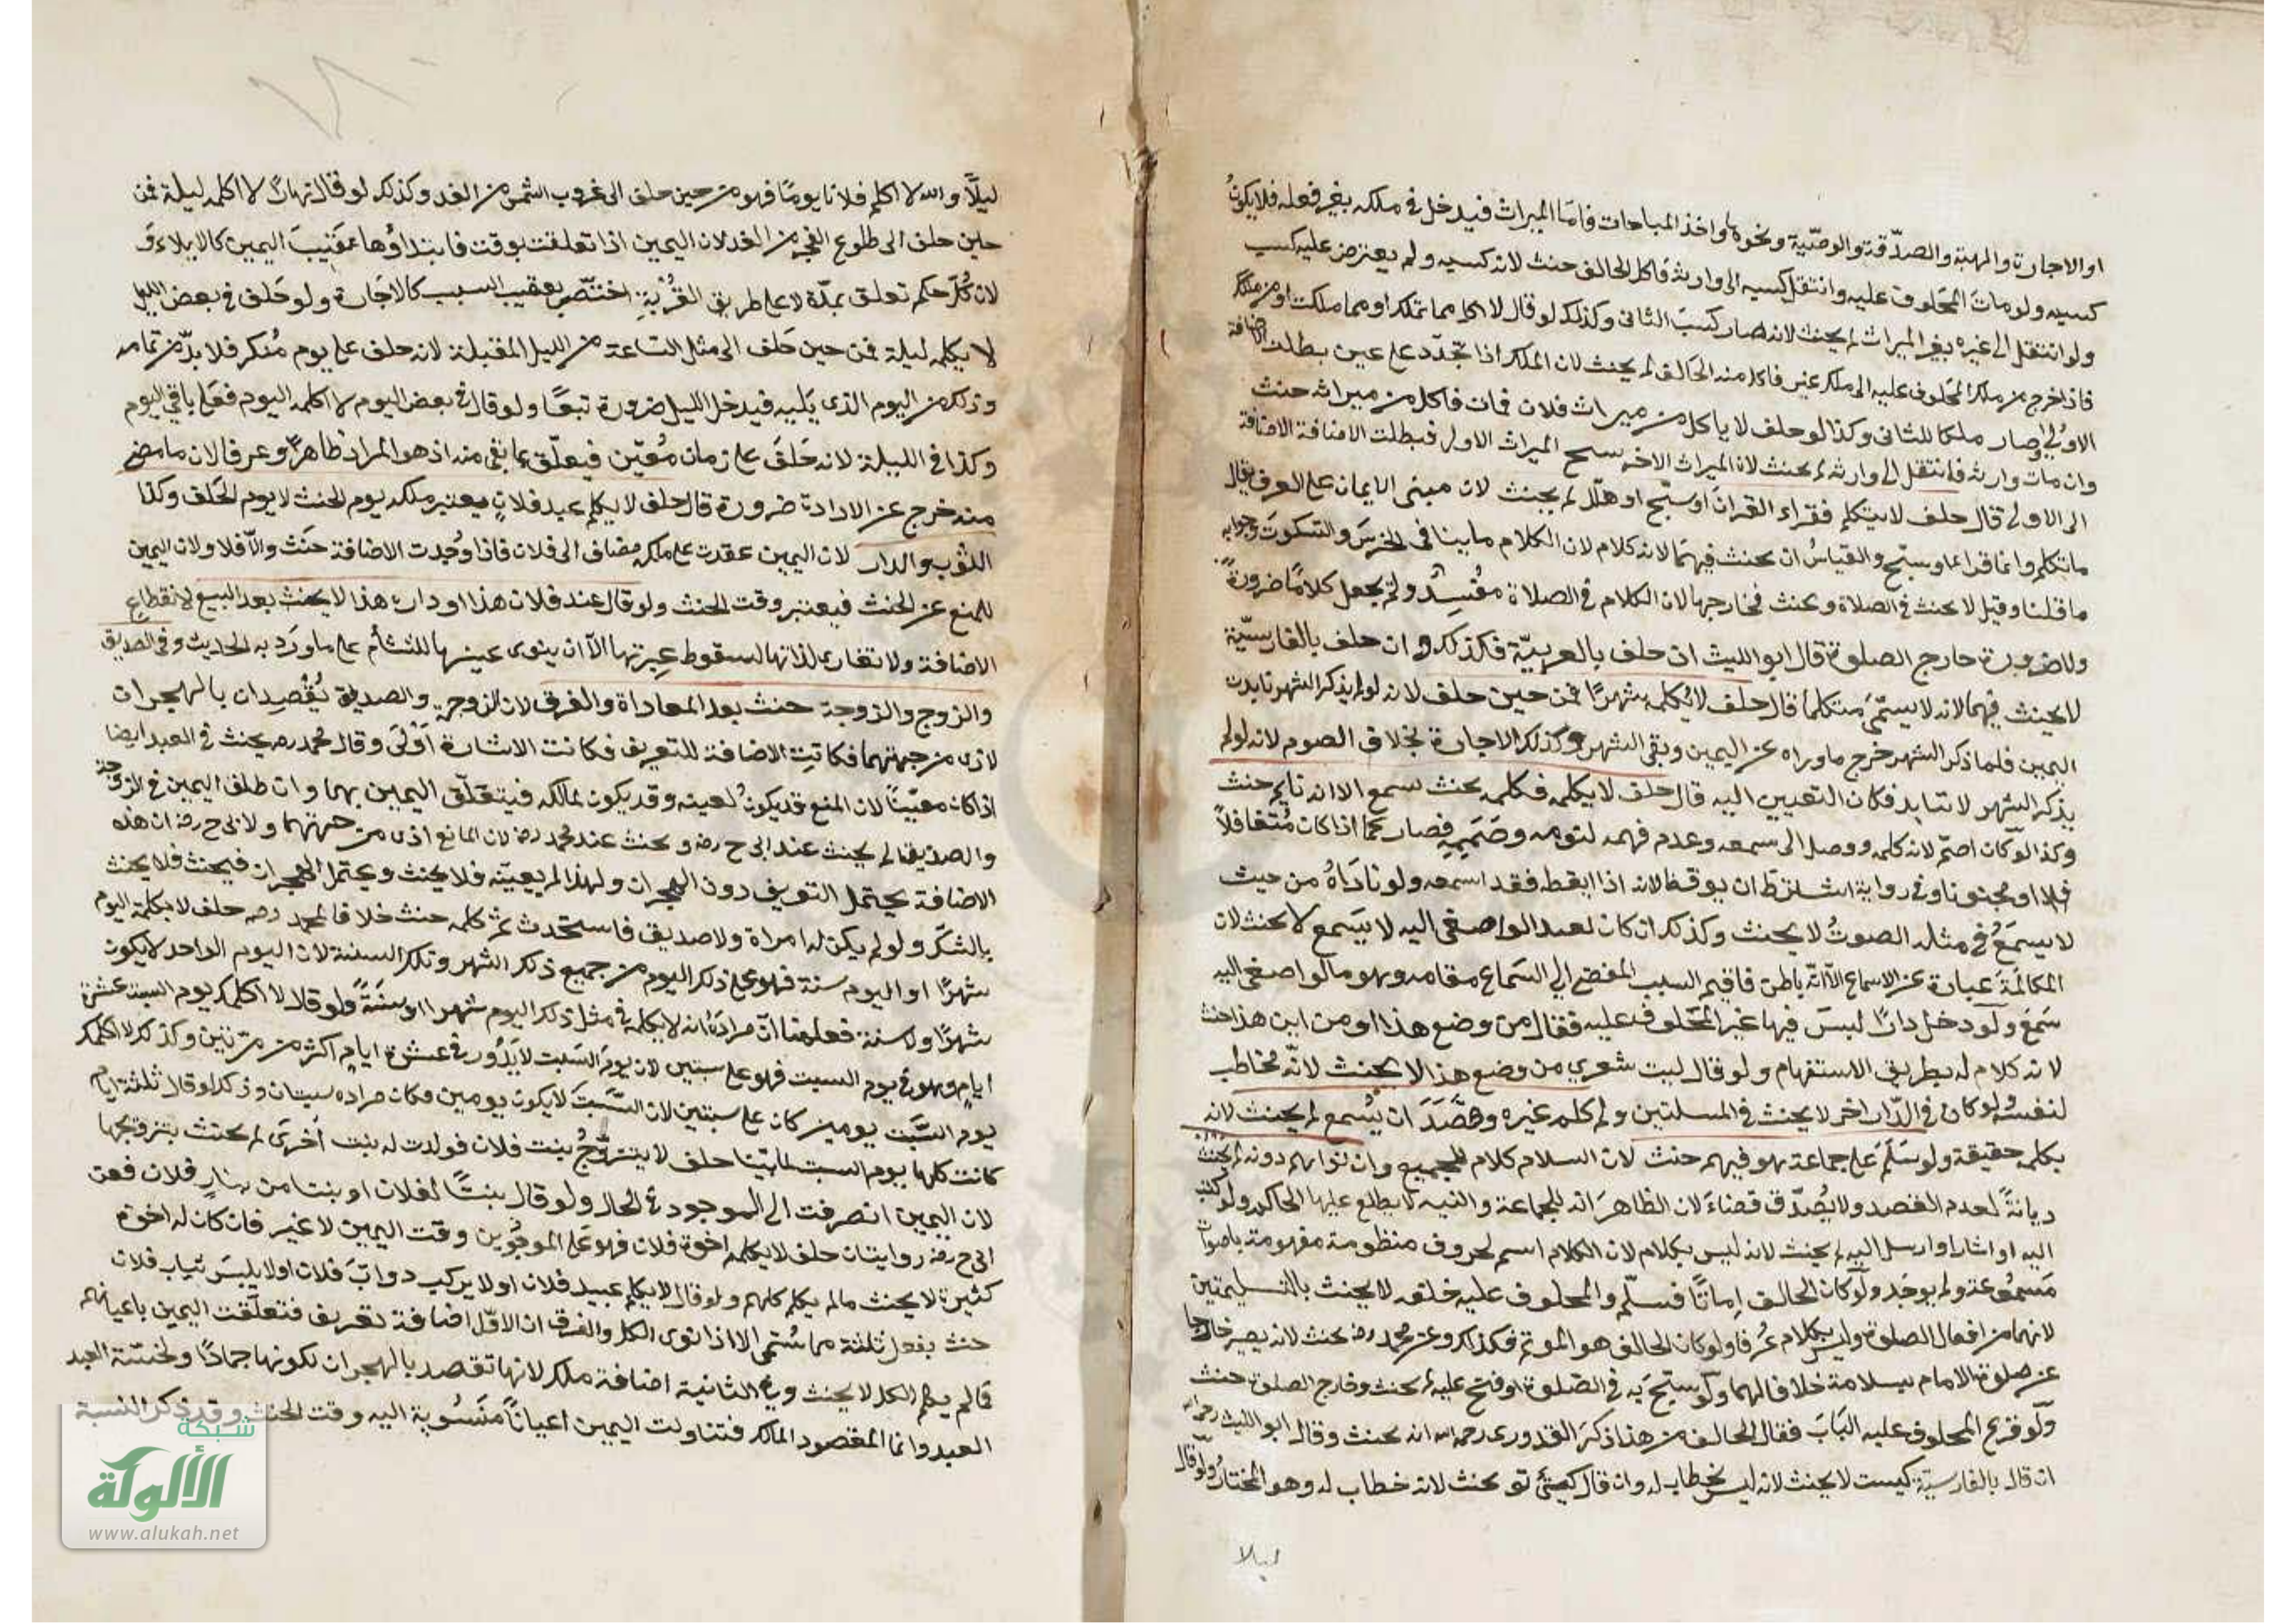 او الاجارة والهبة والصدقة والوصية ونحوها واخذ المباحات فاما الميراث فيدخل في ملكه بغير فعله فلا يكون
كسبه ولو مات المحلوف عليه وانتقل كسبه الى وارثه فاكل الحالف حنث لانه كسبه ولم يعترض عليه كسب
ولو انتقل الى غيره بغير الميراث لم يحنث لانه صار كسب الثاني وكذلك لو قال لا اكل مما تملك او مما ملكت او من ملكك
فاذا خرج من ملك المحلوف عليه الى ملك غيره فاكل منه الحالف لم يحنث لان الملك اذا تجدد على عين بطلت الاضافة
الاولى وصار ملكا للثاني وكذا لو حلف لا ياكل من ميراث فلان فمات فاكل من ميراثه حنث
وان مات وارثه فانتقل الى وارثه لم يحنث لان الميراث الاخر نسخ الميراث الاول فبطلت الاضافة الاضافة
الى الاولى قال حلف لا يتكلم فقراء القران او سبح او هلل لم يحنث لان مبنى الايمان على العرف يقال
ماتكلم وانما قرا وسبح والقياس ان يحنث فيهما لانه كلام لان الكلام ما ينافى الخرس والسكوت وجوابه
ما قلنا وقيل لا يحنث في الصلاة ويحنث في خارجها لان الكلام في الصلاة مفسد ولم يجعل كلاما ضرورة
ولا ضرورة خارج الصلوة قال ابو الليث ان حلف بالعربية فكذلك وان حلف بالفارسية
لا يحنث فيهما لانه لا يسمى متكلما قال حلف لا يكلمه شهرا فمن حين حلف لانه لو لم يذكر الشهر تابدت
اليمين فلما ذكر الشهر خرج ما وراه عن اليمين وبقى الشهر وكذلك الاجارة بخلاف الصوم لانه لو لم
يذكر الشهر لا يتابد فكان التعيين اليه قال حلف لا يكلمه فكلمه بحيث يسمع الا انه نايم حنث
وكذا لو كان اصم لانه كلمه ووصل الى سمعه وعدم فهمه لنومه وصممه فصار كما اذا كان متغافلا
او مجنونا وفي رواية اشترط ان يوقظه لانه اذا ايقظه فقد اسمعه ولو ناداه من حيث
لا يسمع في مثله الصوت لا يحنث وكذلك ان كان لبعد لو اصغى اليه لا يسمع لا يحنث لان
المكالمة عبارة عن الاسماع الا انه باطن فاقيم السبب المفضي الى السماع مقامه وهو ما لو اصغى اليه
سمع ولو دخل دارا ليس فيها غير المحلوف عليه فقال من وضع هذا او من اين هذا حنث
لانه كلام له بطريق الاستفهام ولو قال ليت شعري من وضع هذا لا يحنث لانه مخاطب
لنفسه ولو كان في الدار اخر لا يحنث في المسلتين ولو كلم غيره وقصد ان يسمع لم يحنث لانه
يكلمه حقيقة ولو سلم على جماعة هو فيهم حنث لان السلام كلام للجميع وان نواهم دونه لم يحنث
ديانة لعدم القصد ولا يصدق قضاء لان الظاهر انه للجماعة والنية لا يطلع عليها الحاكم ولو كتب
اليه او اشار او ارسل اليه لم يحنث لانه ليس بكلام لان الكلام اسم لحروف منظومة مفهومة باصوات
مسموعة ولم يوجد ولو كان الحالف اماما فسلم والمحلوف عليه خلفه لا يحنث بالتسليمتين
لانهما من افعال الصلوة وليس بكلام عرفا ولو كان الحالف هو الموتم فكذلك وعن محمد رضه يحنث لانه يصير خارجا
عن صلوة الامام بسلامه خلافا لهما ولو سبح به في الصلوة او فتح عليه لم يحنث وخارج الصلوة حنث
ولو قرع المحلوف عليه الباب فقال الحالف من هذا ذكر القدوري رحمه الله انه يحنث وقال ابو الليث رحمه الله
ان قال بالفارسية كيست لا يحنث لانه ليس بخطاب له وان قال كيي تو يحنث لانه خطاب له وهو المختار ولو قال
ليلا
ليلا والله لا اكلم فلانا يوما فهو من حين حلف الى غروب الشمس من الغد وكذلك لو قال نهارا لا اكلمه ليلة فمن
حين حلف الى طلوع الفجر من الغد لان اليمين اذا تعلقت بوقت فابتداؤها عقيب اليمين كالايلاء و
لان كل حكم تعلق بمدة لا على طريق القربة اختص بعقيب السبب كالاجارة ولو حلف في بعض الليل
لا يكلمه ليلة فمن حين حلف الى مثل الساعة من الليل المقبلة لانه حلف على يوم منكر فلا بد من تمامه
وذلك من اليوم الذي يليه فيدخل الليل ضرورة تبعا ولو قال في بعض اليوم لا اكلمه اليوم فعلى باقي اليوم
وكذا في الليلة لانه حلف على زمان معين فيعلق بما بقي منه اذ هو المراد ظاهرا وعرفا لان ما مضى
منه خرج عن الارادة ضرورة قال حلف لا يكلم عبد فلان يعتبر ملكه يوم الحنث لا يوم الحلف وكذا
الثوب والدار لان اليمين عقدت على ملك مضاف الى فلان فاذا وجدت الاضافة حنث والا فلا ولان اليمين
للمنع عن الحنث فيعتبر وقت الحنث ولو قال عبد فلان هذا او داره هذا لا يحنث بعد البيع لانقطاع
الاضافة ولا تعادى لذاتها لسقوط عبرتها الا ان ينوى عينها للتشأم على ما ورد به الحديث وفي الصديق
والزوج والزوجة حنث بعد المعاداة والفرق لان الزوجه والصديق يقصدان بالهجران
لاذى من جهتهما فكانت الاضافة للتعريف فكانت الاشارة اولى وقال محمد رحه يحنث في العبد ايضا
اذا كان معينا لان المنع قد يكون لعينه وقد يكون لمالكه فيتعلق اليمين بهما وان طلق اليمين في الزوجة
والصديق لم يحنث عند ابي ح رضه ويحنث عند محمد رضه لان المانع اذى من جهتهما ولابي ح رضه ان هذه
الاضافة يحتمل التعريف دون الهجران ولهذا لم يعينه فلا يحنث ويحتمل الهجران فيحنث فلا يحنث
بالشك ولو لم يكن له امراة ولا صديق فاستحدث ثم كلمه حنث خلافا لمحمد رحمه حلف لا يكلمه اليوم
شهرا او اليوم سنة فهو على ذلك اليوم من جميع ذلك الشهر وتلك السنة لان اليوم الواحد لا يكون
شهرا ولا سنة فعلمنا ان مراده انه لا يكلمه في مثل ذلك اليوم شهرا او سنة ولو قال لا اكلمك يوم السبت عشرة
ايام وهو في يوم السبت فهو على سبتين لان يوم السبت لا يدور في عشرة ايام اكثر من مرتين وكذلك لا اكلمك
يوم السبت يومين كان على سبتين لان السبت لا يكون يومين فكان مراده سبتان وكذا لو قال ثلثة ايام
كانت كلها يوم السبت لما بينا حلف لا يتزوج بنت فلان فولدت له بنت اخرى لم يحنث بتزوجها
لان اليمين انصرفت الى الموجود في الحال ولو قال بنتا لفلان او بنتا من بنات فلان فعن
ابي ح رضه روايتان حلف لا يكلم اخوة فلان فهو على الموجودين وقت اليمين لا غير فان كان له اخوة
كثيرة لا يحنث ما لم يكلم كلهم ولو قال لا يكلم عبيد فلان او لا يركب دواب فلان او لا يلبس ثياب فلان
حنث بفعل ثلثة مما سمى الا اذا نوى الكل والفرق ان الاول اضافة تعريف فتعلقت اليمين باعيانهم
فما لم يكلم الكل لا يحنث وفي الثانية اضافة ملك لانها لا تقصد بالهجران لكونها جمادا ولخسة العبد
العبد وانما المقصود المالك فتناولت اليمين اعيانا منسوبة اليه وقت الحنث وقد ذكر النسبة
شبكة
الألوكة
www.alukah.net